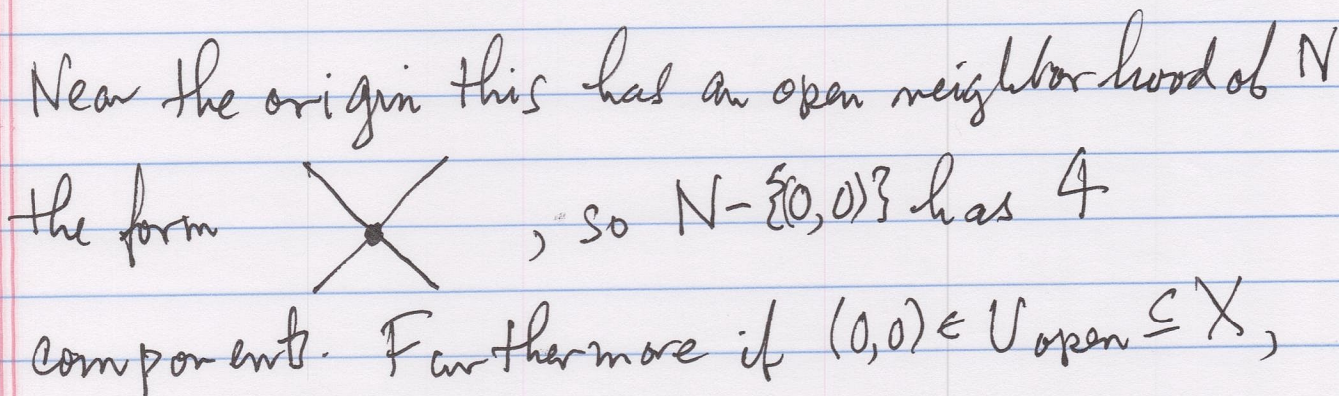 Near the origin this has an open neighborhood of N
the form , so N-{(0,0)} has 4
components. Furthermore if (0,0) ∈ U open ⊆ X,